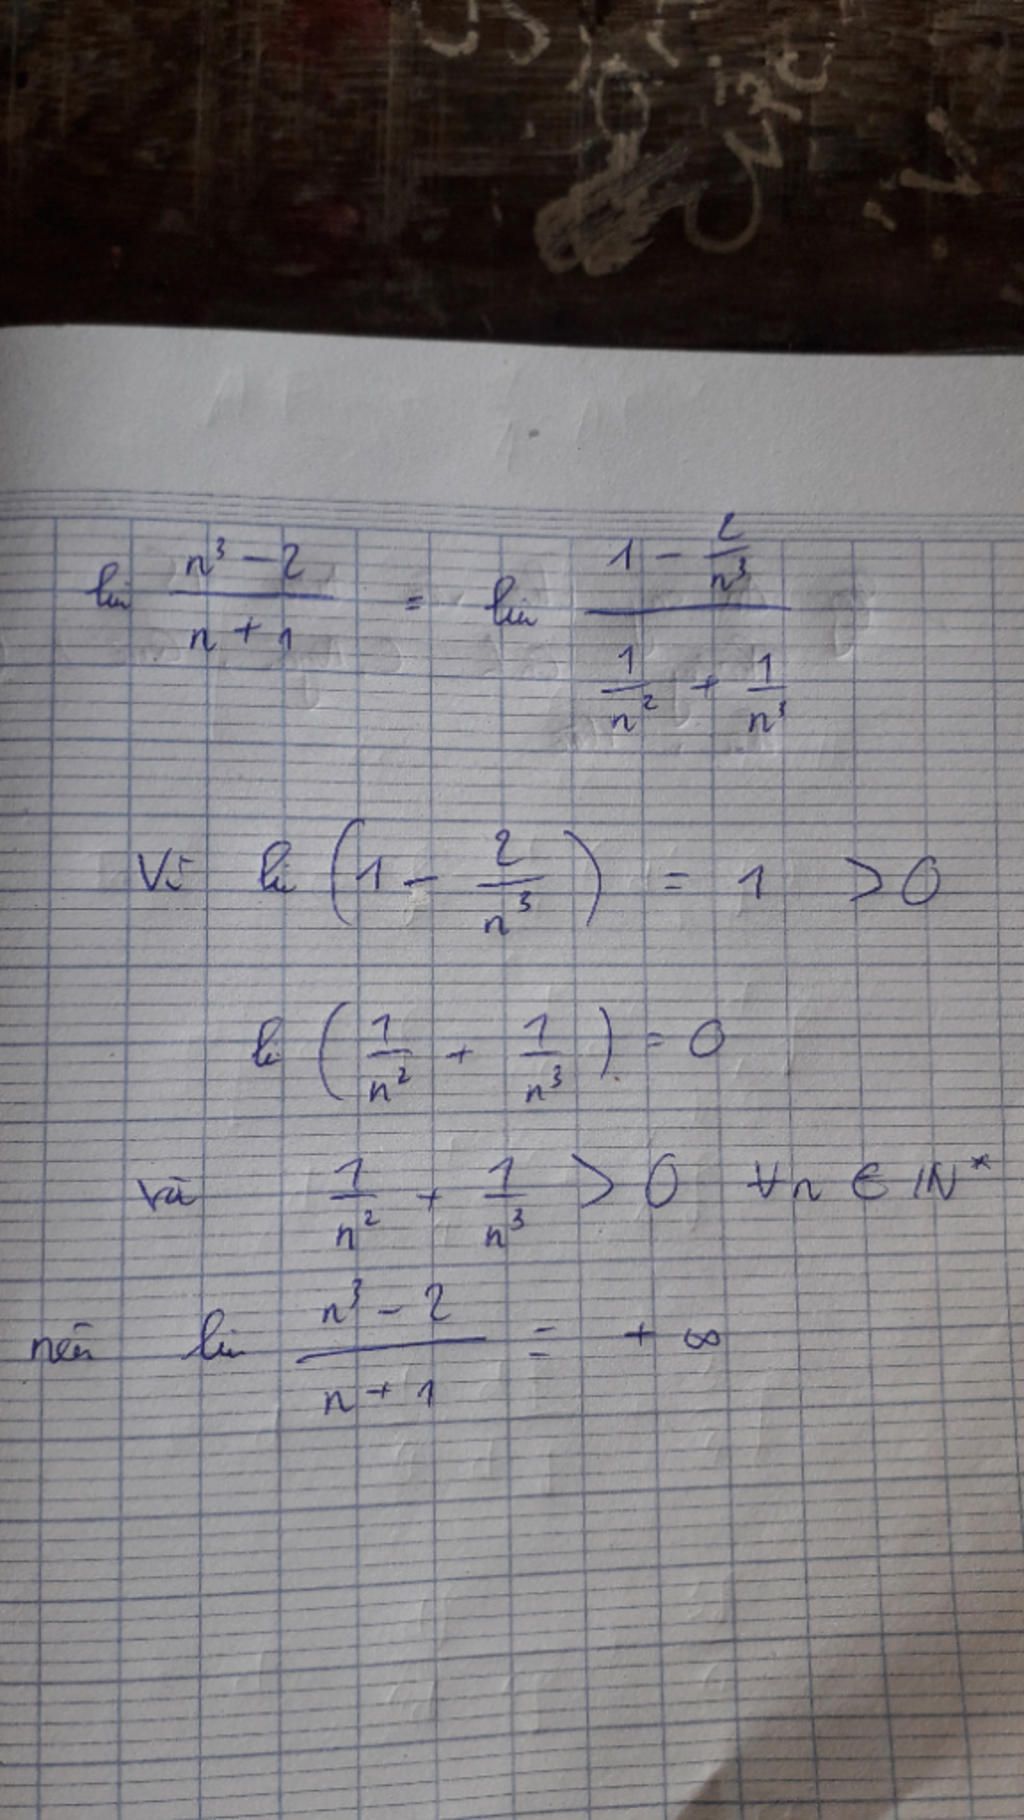 lim (n³ - 2)/(n + 1) = lim (1 - 2/n³)/(1/n² + 1/n³)
Vì lim (1 - 2/n³) = 1 > 0
lim (1/n² + 1/n³) = 0
và 1/n² + 1/n³ > 0 ∀n ∈ ℕ*
nên lim (n³ - 2)/(n + 1) = + ∞